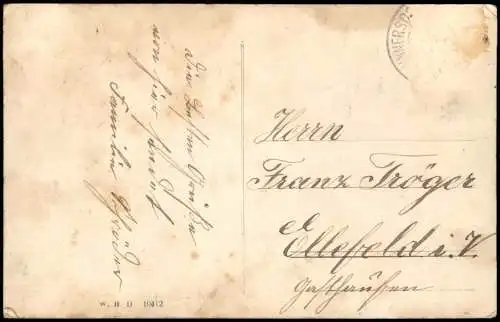 Die besten Grüße
von hier sendet
Familie
NNERSD
Herrn
Franz Tröger
Ellefeld i. V.
Gasthausen
W. H. D 19412